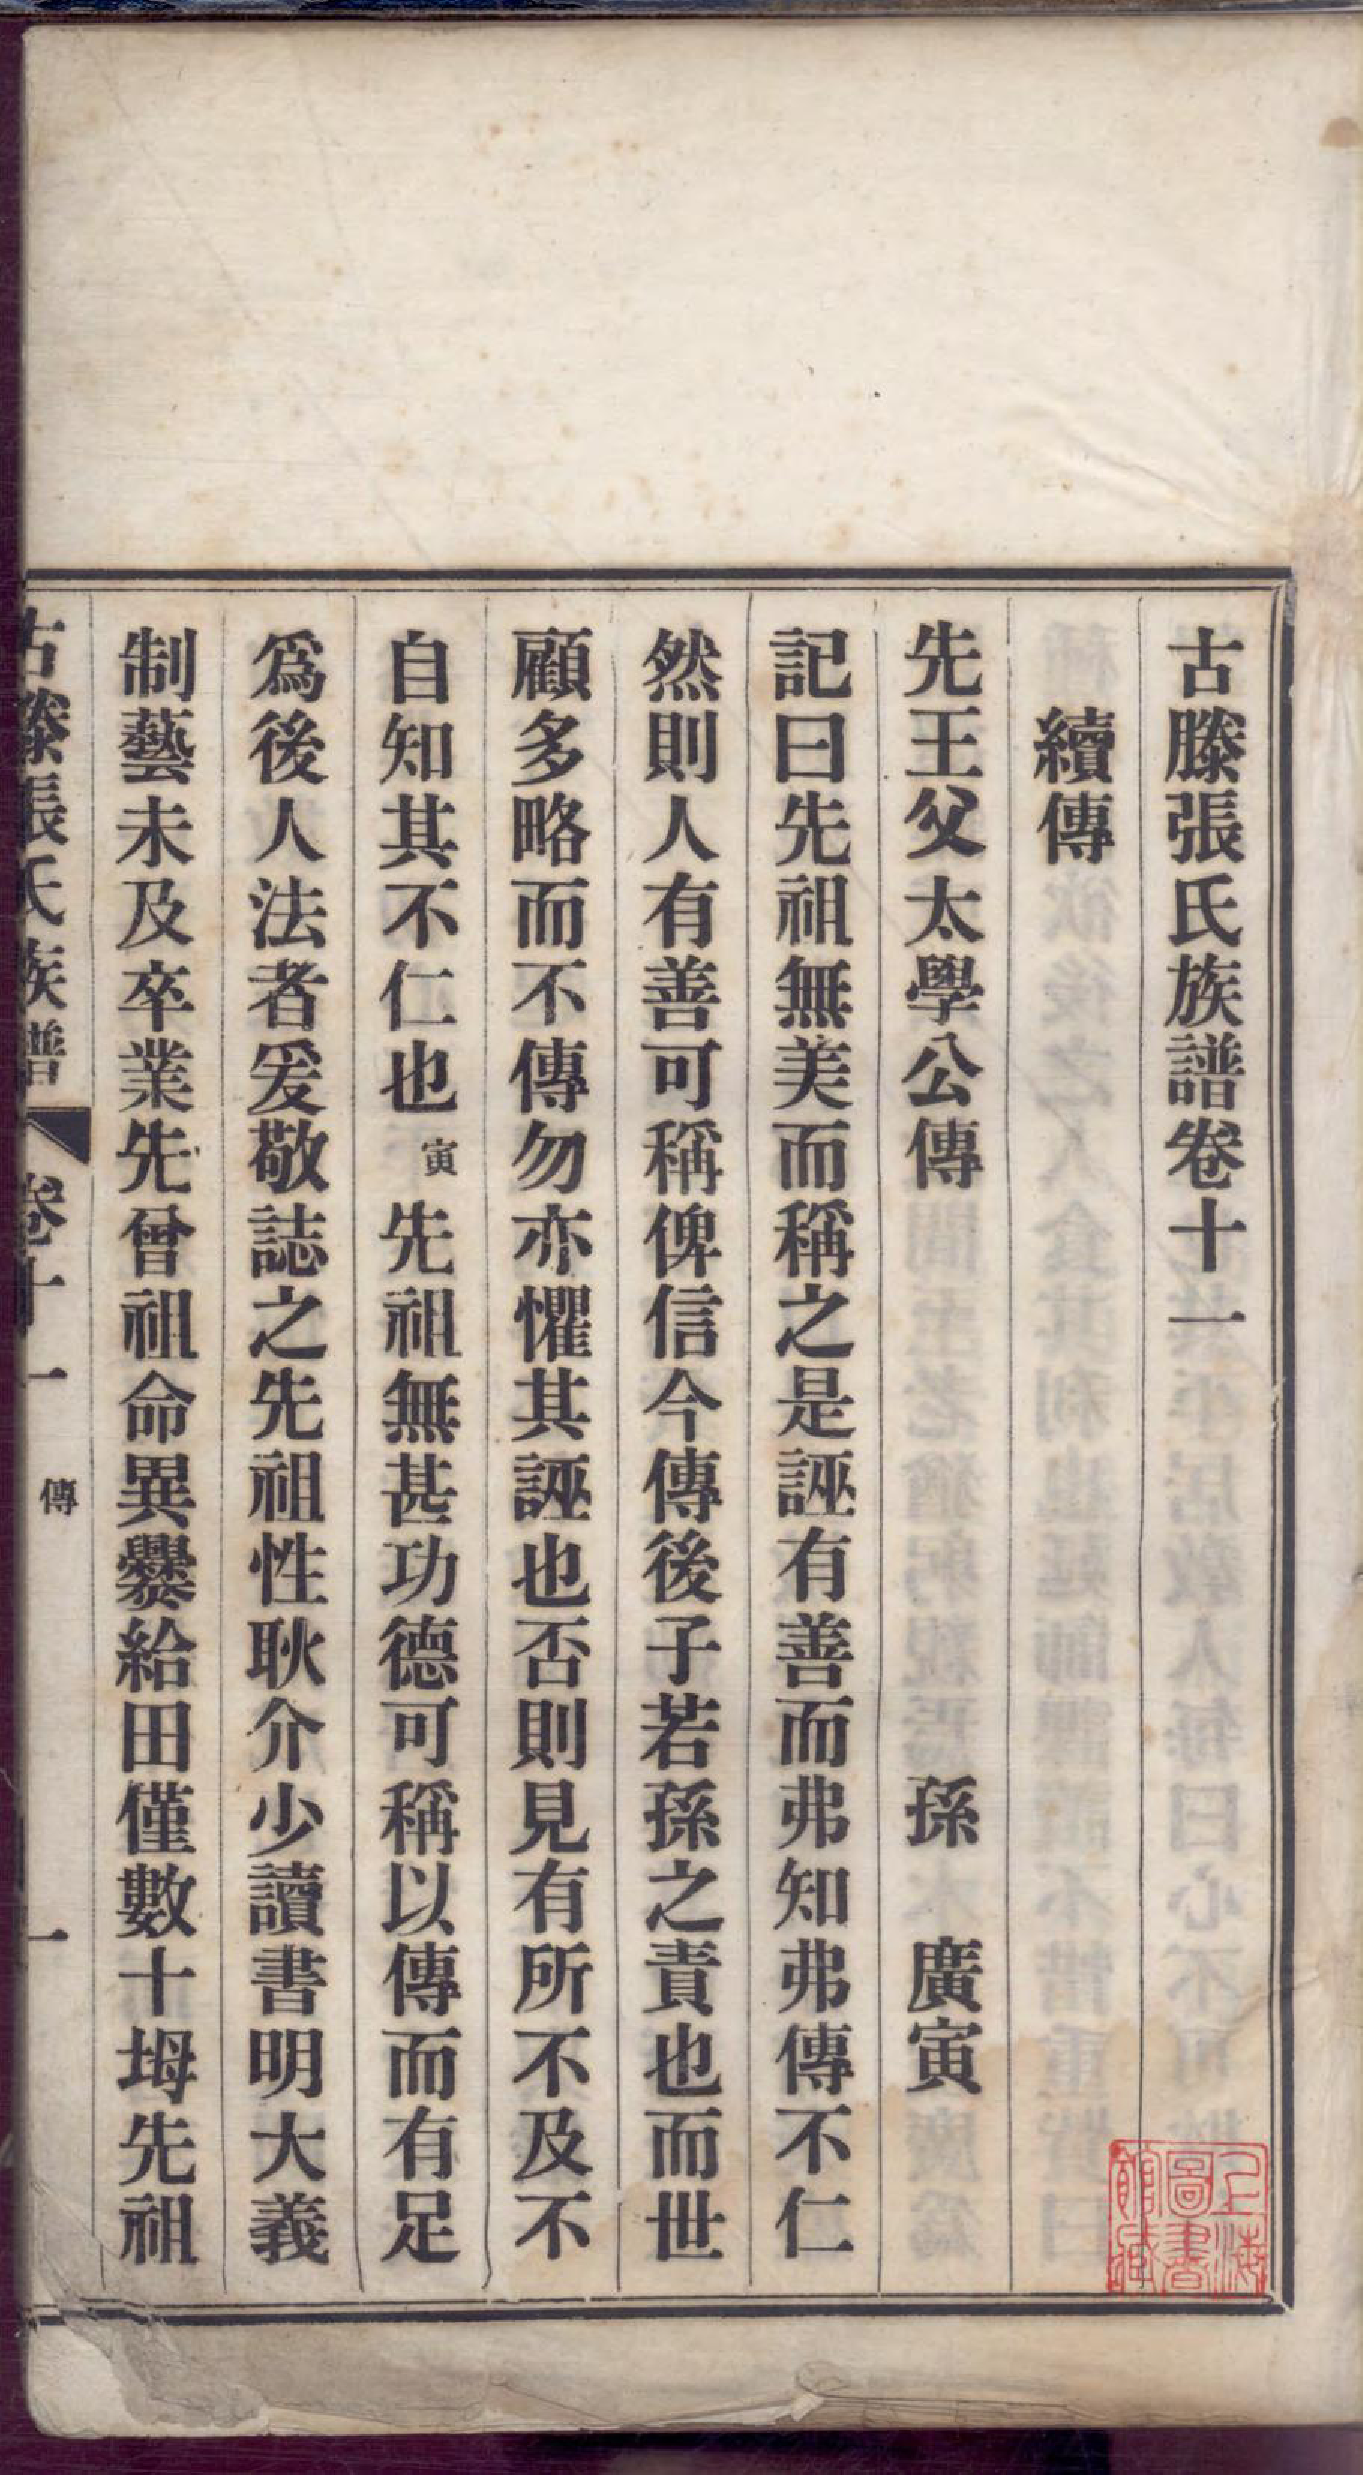 古滕張氏族譜卷十一
續傳
先王父太學公傳 孫 廣寅
記曰先祖無美而稱之是誣有善而弗知弗傳不仁
然則人有善可稱俾信今傳後子若孫之責也而世
顧多略而不傳勿亦懼其誣也否則見有所不及不
自知其不仁也寅先祖無甚功德可稱以傳而有足
為後人法者爰敬誌之先祖性耿介少讀書明大義
制藝未及卒業先曾祖命異爨給田僅數十坶先祖
古滕張氏族譜 卷十一 傳 一
上海圖書館藏